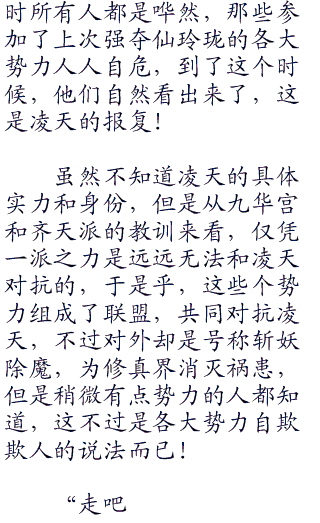 时所有人都是哗然，那些参
加了上次强夺仙玲珑的各大
势力人人自危，到了这个时
候，他们自然看出来了，这
是凌天的报复！
虽然不知道凌天的具体
实力和身份，但是从九华宫
和齐天派的教训来看，仅凭
一派之力是远远无法和凌天
对抗的，于是乎，这些个势
力组成了联盟，共同对抗凌
天，不过对外却是号称斩妖
除魔，为修真界消灭祸患，
但是稍微有点势力的人都知
道，这不过是各大势力自欺
欺人的说法而已！
“走吧